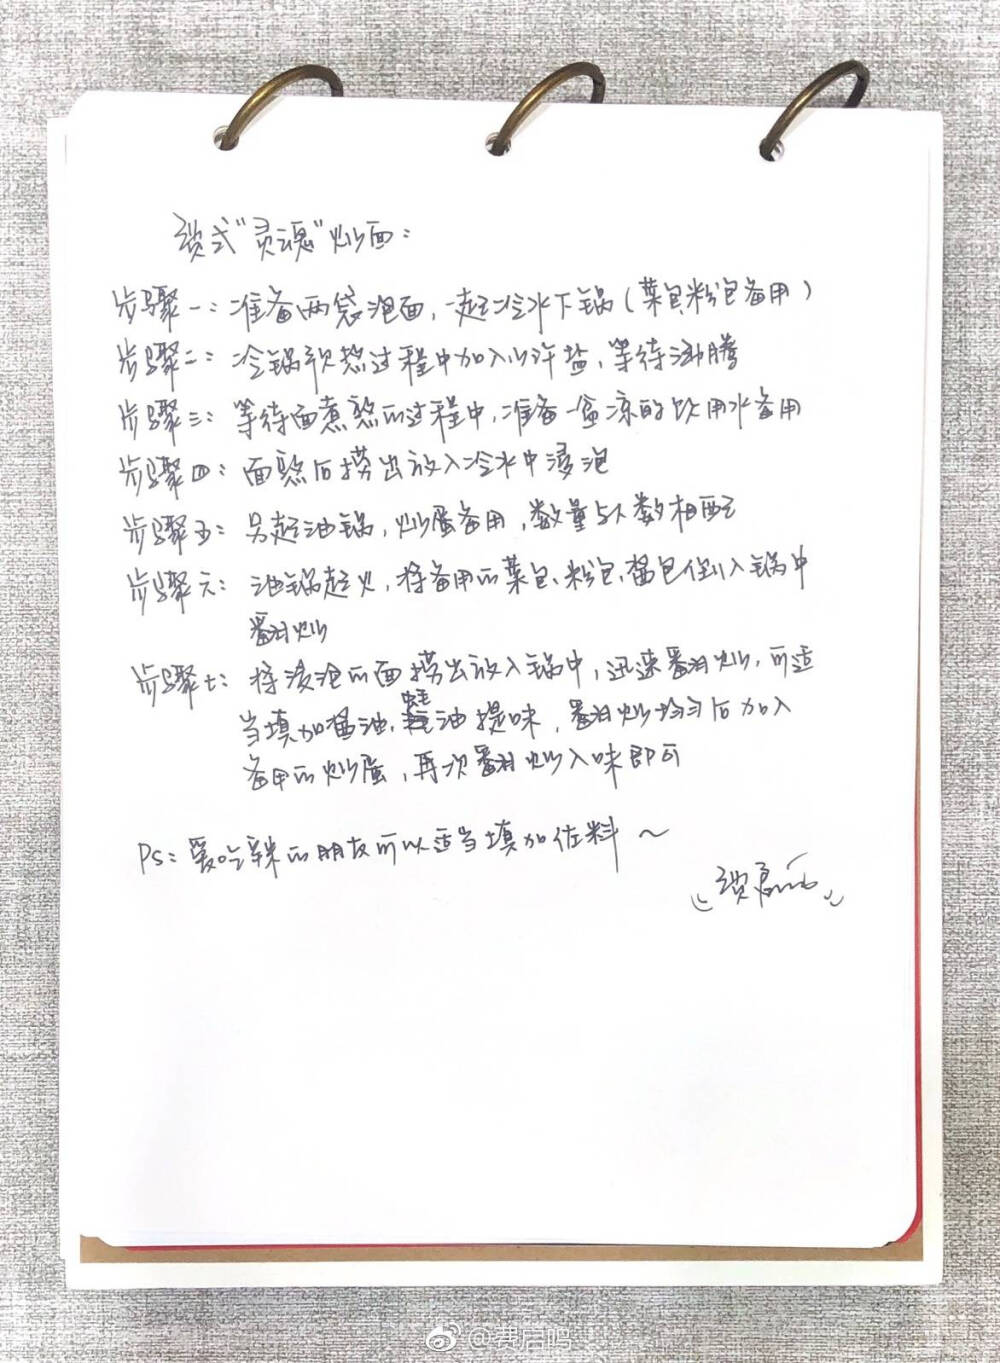 费式“灵魂”炒面：
步骤一：准备两袋泡面，一起冷水下锅（菜包粉包备用）
步骤二：冷锅预热过程中加入少许盐，等待沸腾
步骤三：等待面煮熬的过程中，准备一盆凉的饮用水备用
步骤四：面熬后捞出放入冷水中浸泡
步骤五：另起油锅，炒蛋备用，数量与人数相配
步骤六：油锅起火，将备用的菜包、粉包、酱包倒入锅中
翻炒
步骤七：将浸泡的面捞出放入锅中，迅速翻炒，可适
当填加酱油，蚝油提味，翻炒均匀后加入
备用的炒蛋，再次翻炒入味即可
Ps：爱吃辣的朋友可以适当填加佐料～
费启鸣
@费启鸣